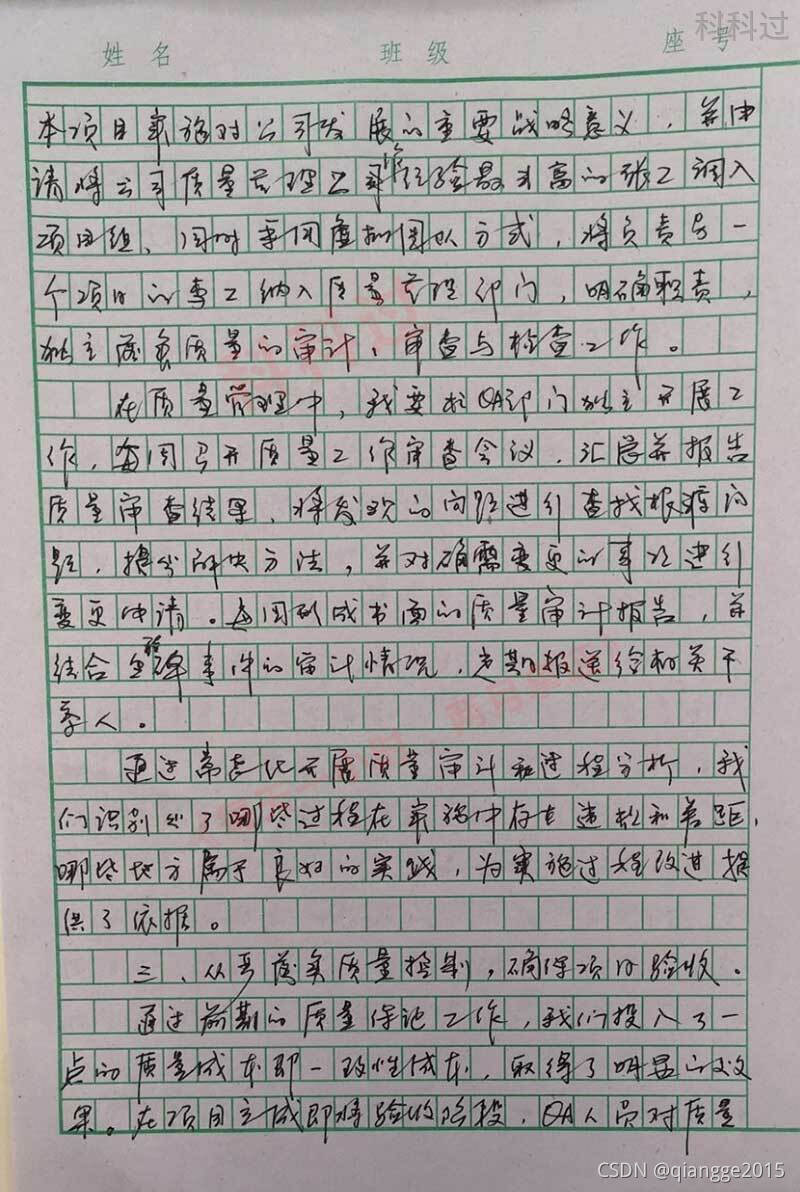 科科过
姓名 班级 座号
本项目实施对公司发展的重要战略意义，并申
请将公司质量管理工作经验最丰富的张工调入
项目组、同时采用虚拟团队方式，将负责另一
个项目的李工纳入质量管理部门，明确职责，
独立落实质量的审计、审查与检查工作。
在质量管理中，我要求QA部门独立开展工
作，每周召开质量工作审查会议，汇总并报告
质量审查结果，将发现的问题进行查找根源问
题，提出解决方法，并对确需变更的事项进行
变更申请。每周形成书面的质量审计报告，并
结合里程碑事件的审计情况，定期报送给相关干
系人。
通过常态化开展质量审计和过程分析，我
们识别出了哪些过程在实施中存在违规和差距，
哪些地方属于良好的实践，为实施过程改进提
供了依据。
三、从严落实质量控制，确保项目验收。
通过前期的质量保证工作，我们投入了一
点的质量成本即一致性成本，取得了明显的效
果。在项目完成即将验收阶段，QA人员对质量
CSDN @qiangge2015